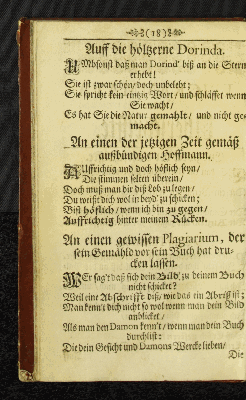 (18)
Auff die höltzerne Dorinda.
UMbsonst daß man Dorind' biß an die Stern
erhebt!
Sie ist zwar schön/ doch unbelebt;
Sie spricht kein eintzig Wort/ und schläffet wenn
Sie wacht/
Es hat Sie die Natur gemahlt/ und nicht ge-
macht.
An einen der jetzigen Zeit gemäß
außbündigen Hoffmann.
AUffrichtig und doch höflich seyn/
Die stimmen selten überein/
Doch muß man dir diß Lob zu legen/
Du weißt dich wol in beyd' zu schicken;
Bist höflich/ wenn ich bin zu gegen/
Auffrichtig hinter meinem Rücken.
An einen gewissen Plagiarium, der
sein Gemähld vor sein Buch hat dru-
cken lassen.
WEr sagt daß sich dein Bild/ zu deinem Buch
nicht schicket?
Weil eine Abschrifft diß/ wie das ein Abriß ist;
Man kenn't dich nicht so wol wenn man dein Bild
anblicket/
Als man den Damon kenn't/ wenn man dein Buch
durchlist:
Die dein Gesicht und Damons Wercke lieben/
Die